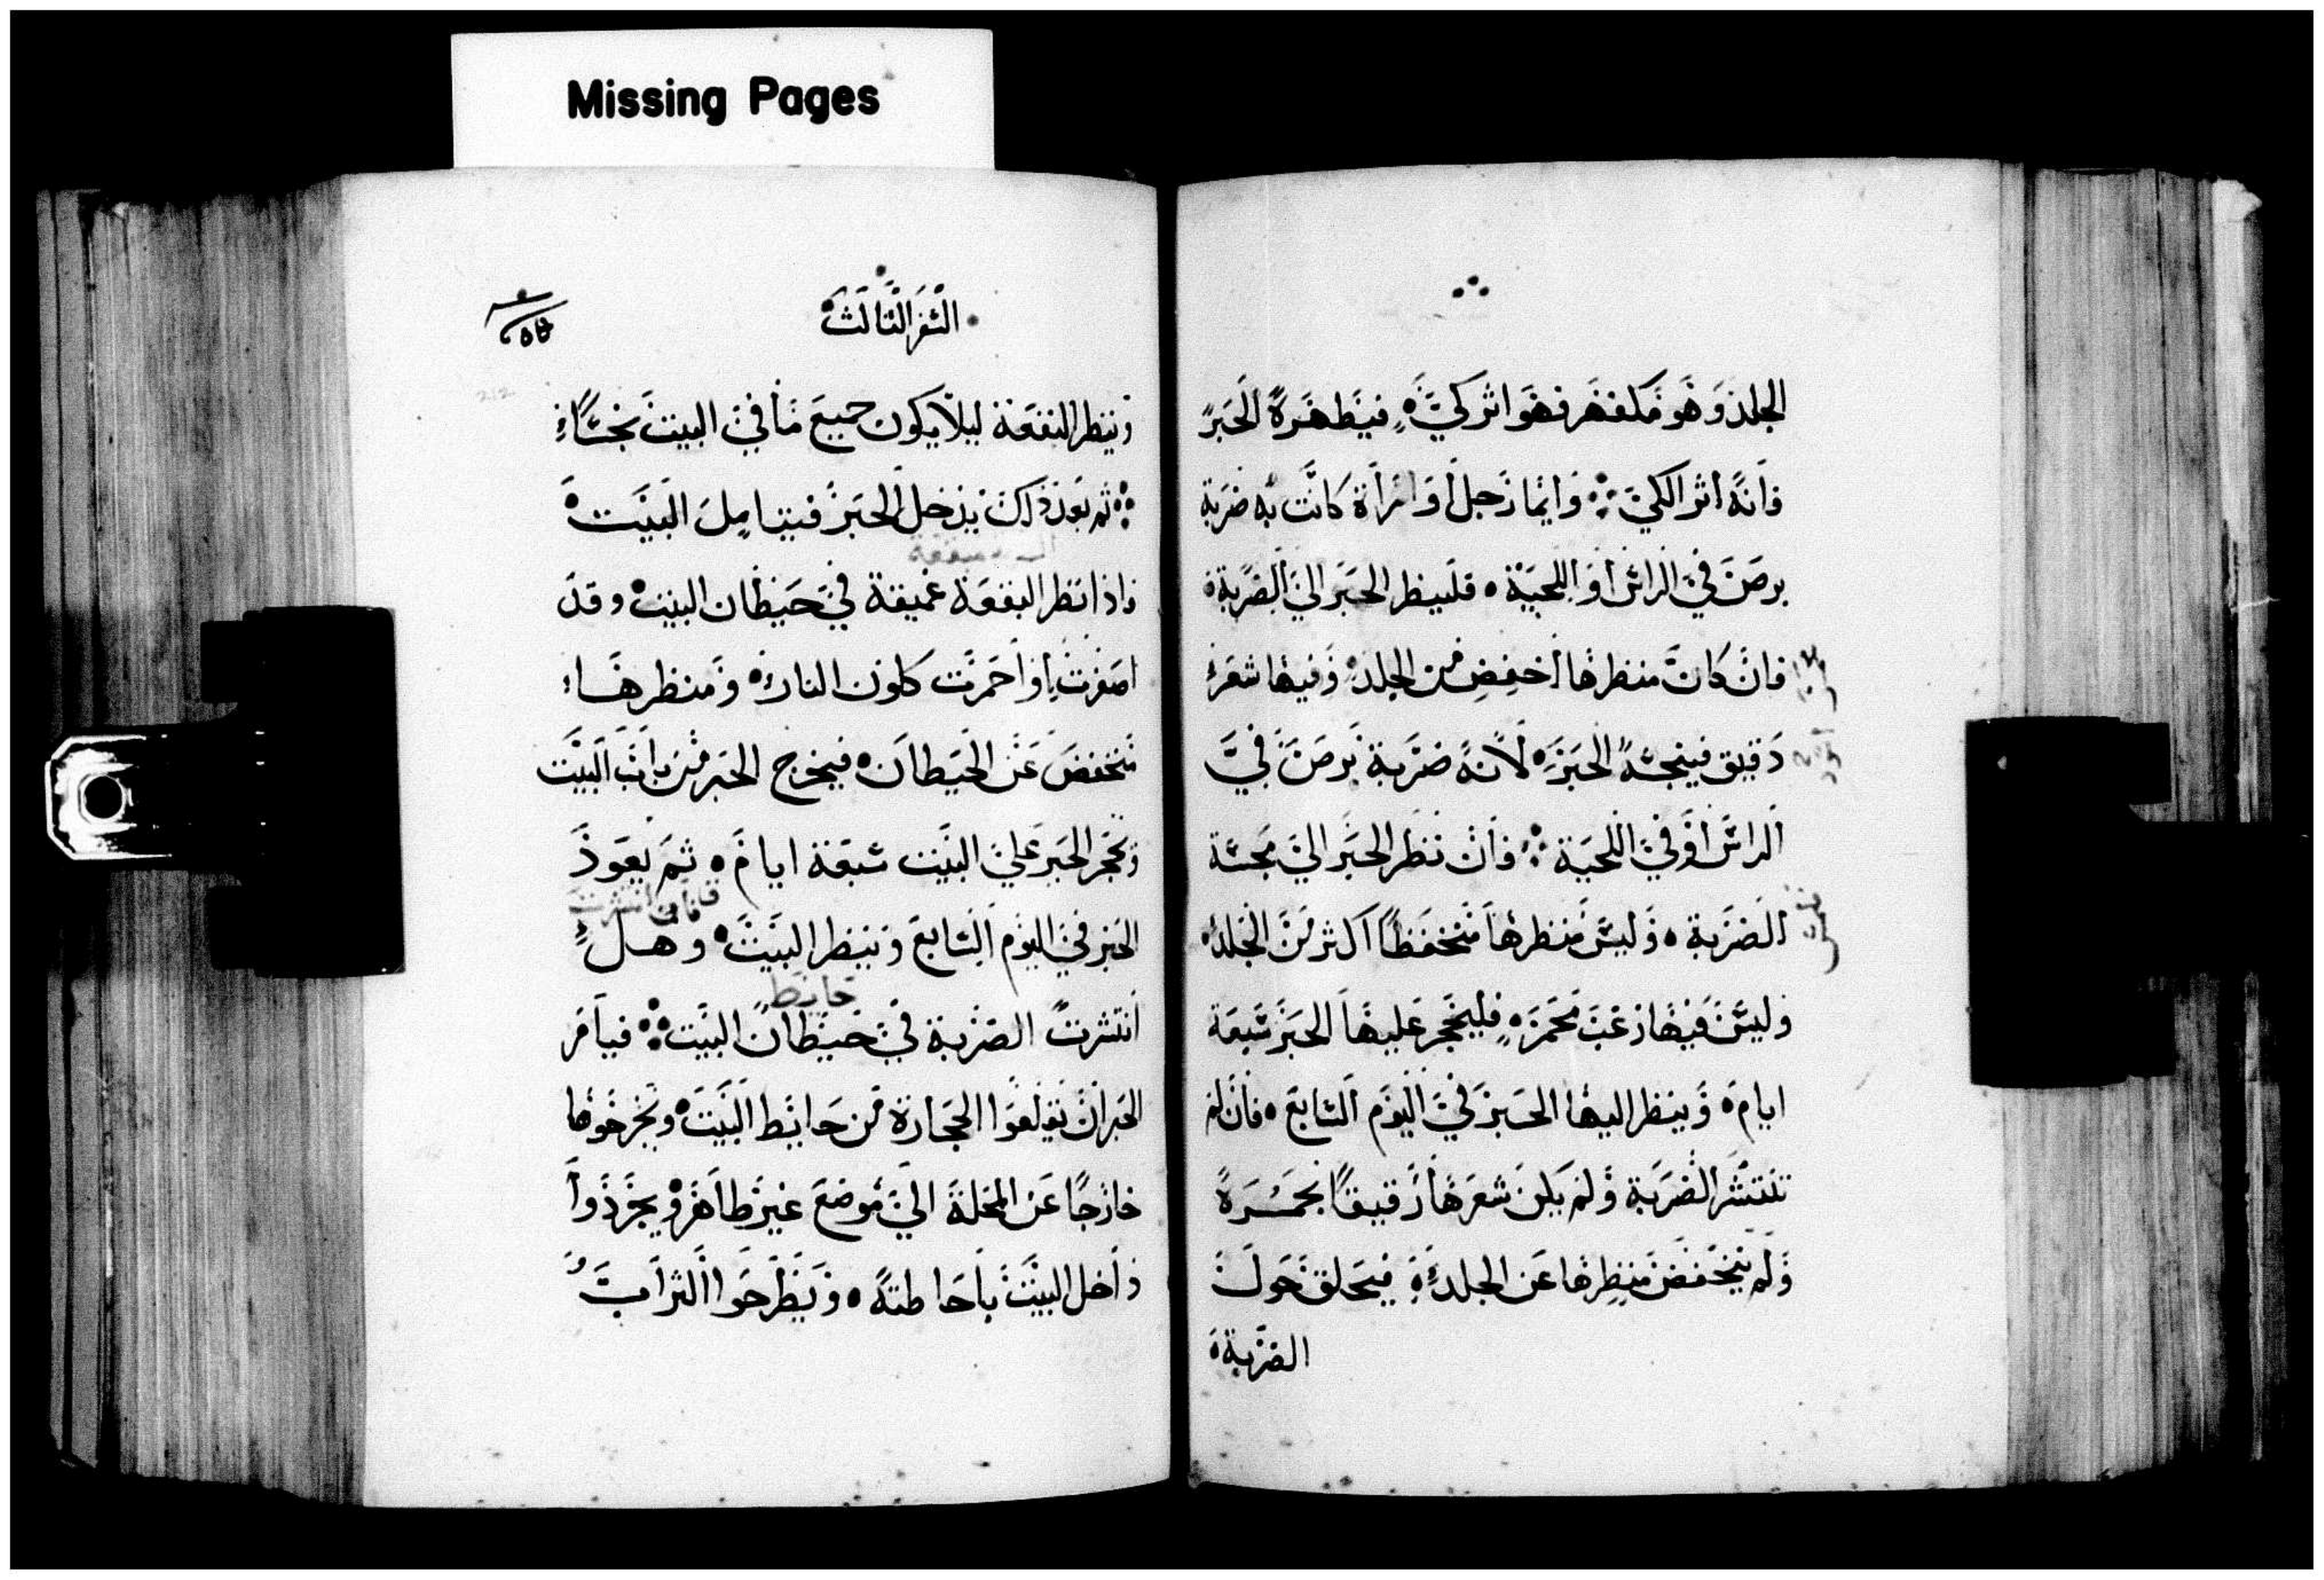 Missing Pages
الجلد وهو مكفهر فهو اثر كي فيطهره الحبر
فانه اثر الكي وايما رجل او امراة كانت به ضربة
برص في الراس او اللحية فلينظر الحبر الي الضربة
فان كان منظرها اخفض من الجلد وفيها شعر
دقيق فينجسه الحبر لانه ضربة برص في
الراس او في اللحية فان نظر الحبر الي مجسة
الضربة وليس منظرها منخفظا اكثر من الجلد
وليس فيها زغب محمر فليحجر عليها الحبر سبعة
ايام وينظر اليها الحبر في اليوم السابع فان لم
تنتشر الضربة ولم يكن شعرها رقيقا بحمرة
ولم ينخفض منظرها عن الجلد فيحلق حول
الضربة
السفر الثالث
212
وينظر البقعة ليلا يكون جميع ما في البيت نجسا
ثم بعد ذلك يدخل الحبر فيتامل البيت
فاذا نظر البقعة عميقة في حيطان البيت وقد
اصفرت او احمرت كلون النار ومنظرها
منخفض عن الحيطان فيخرج الحبر من باب البيت
ويحجر الحبر علي البيت سبعة ايام ثم يعود
فان انتشرت
الحبر في اليوم السابع وينظر البيت وهل
حايط
انتشرت الضربة في حيطان البيت فيامر
الحبر ان يقلعوا الحجارة من حايط البيت ويخرجوها
خارجا عن المحلة الي موضع غير طاهر ويجردوا
داخل البيت باحاطته ويطرحوا التراب